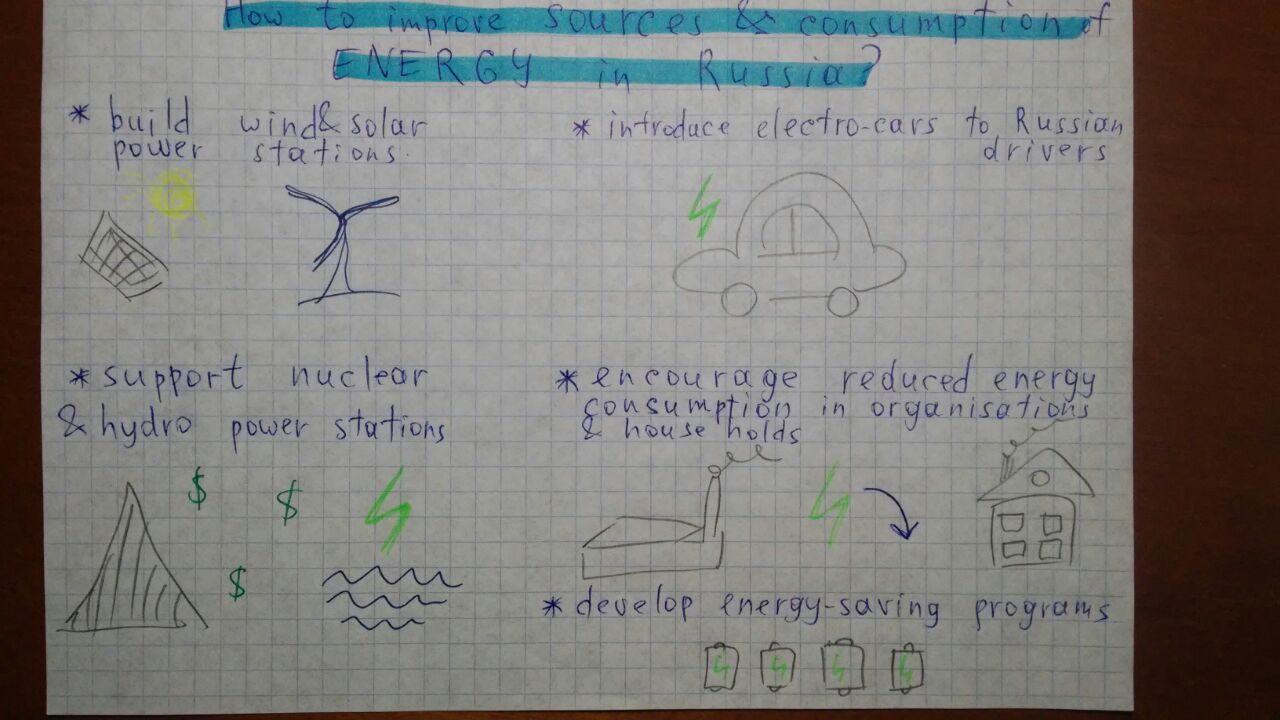 How to improve sources & consumption of
ENERGY in Russia?
* build wind & solar
power stations.
* introduce electro-cars to Russian
drivers
* support nuclear
& hydro power stations
$ $
$
* encourage reduced energy
consumption in organisations
& house holds
* develop energy-saving programs